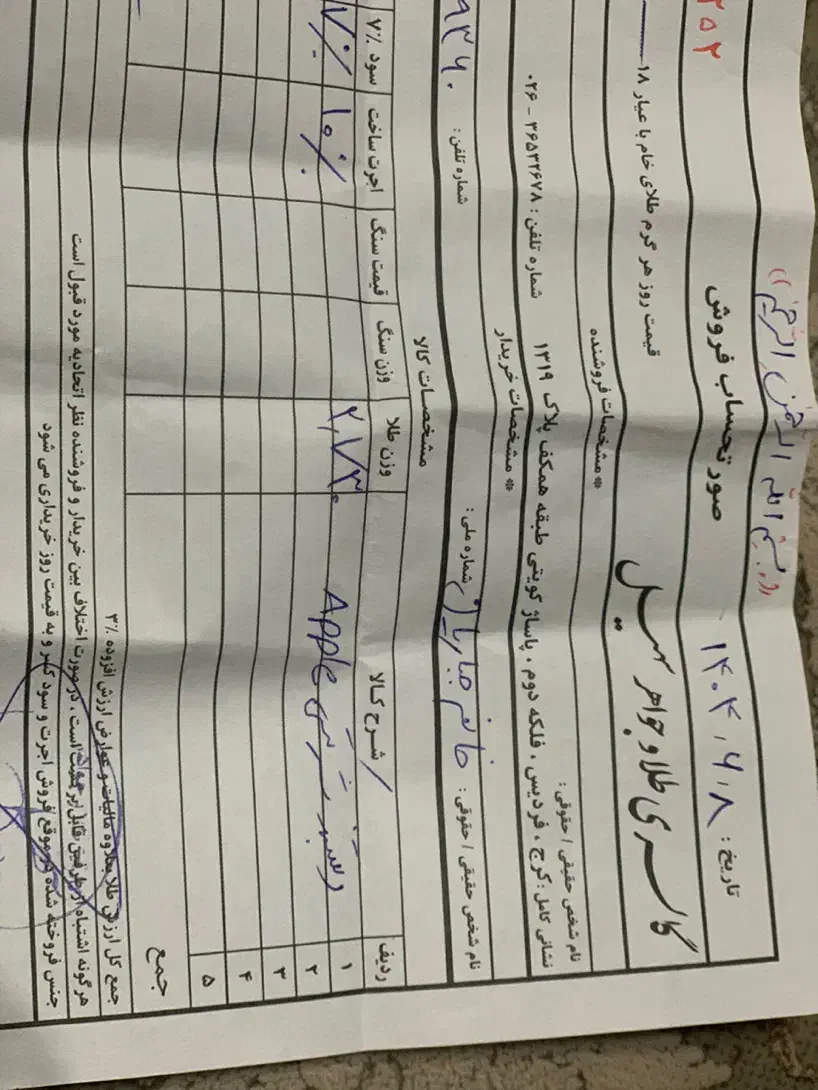 ((بسم الله الرحمن الرحیم))
صورتحساب فروش
تاریخ: ۱۴۰۴,۶,۸
۲۵۲
گالری طلا و جواهر
قیمت روز هر گرم طلای خام با عیار ۱۸
* مشخصات فروشنده
نام شخص حقیقی / حقوقی:
نشانی کامل: کرج، فردیس، فلکه دوم، پاساژ کویتی طبقه همکف پلاک ۱۳۱۹ شماره تلفن: ۳۶۵۳۲۶۷۸ - ۰۲۶
* مشخصات خریدار
نام شخص حقیقی / حقوقی: خانم
شماره ملی:
شماره تلفن:
۹۳۶۰
مشخصات کالا
ردیف شرح کالا وزن طلا وزن سنگ قیمت سنگ اجرت ساخت سود ۷%
۱ Apple ۲,۷۳۰ ۱۰% ۷%
۲
۳
۴
۵
جمع
جمع کل ارزش طلا بعلاوه مالیات و عوارض ارزش افزوده ۳%
هر گونه اشتباه از طرفین قابل برگشت است، در صورت اختلاف بین خریدار و فروشنده نظر اتحادیه مورد قبول است
جنس فروخته شده در موقع فروش اجرت و سود کسر و به قیمت روز خریداری می شود